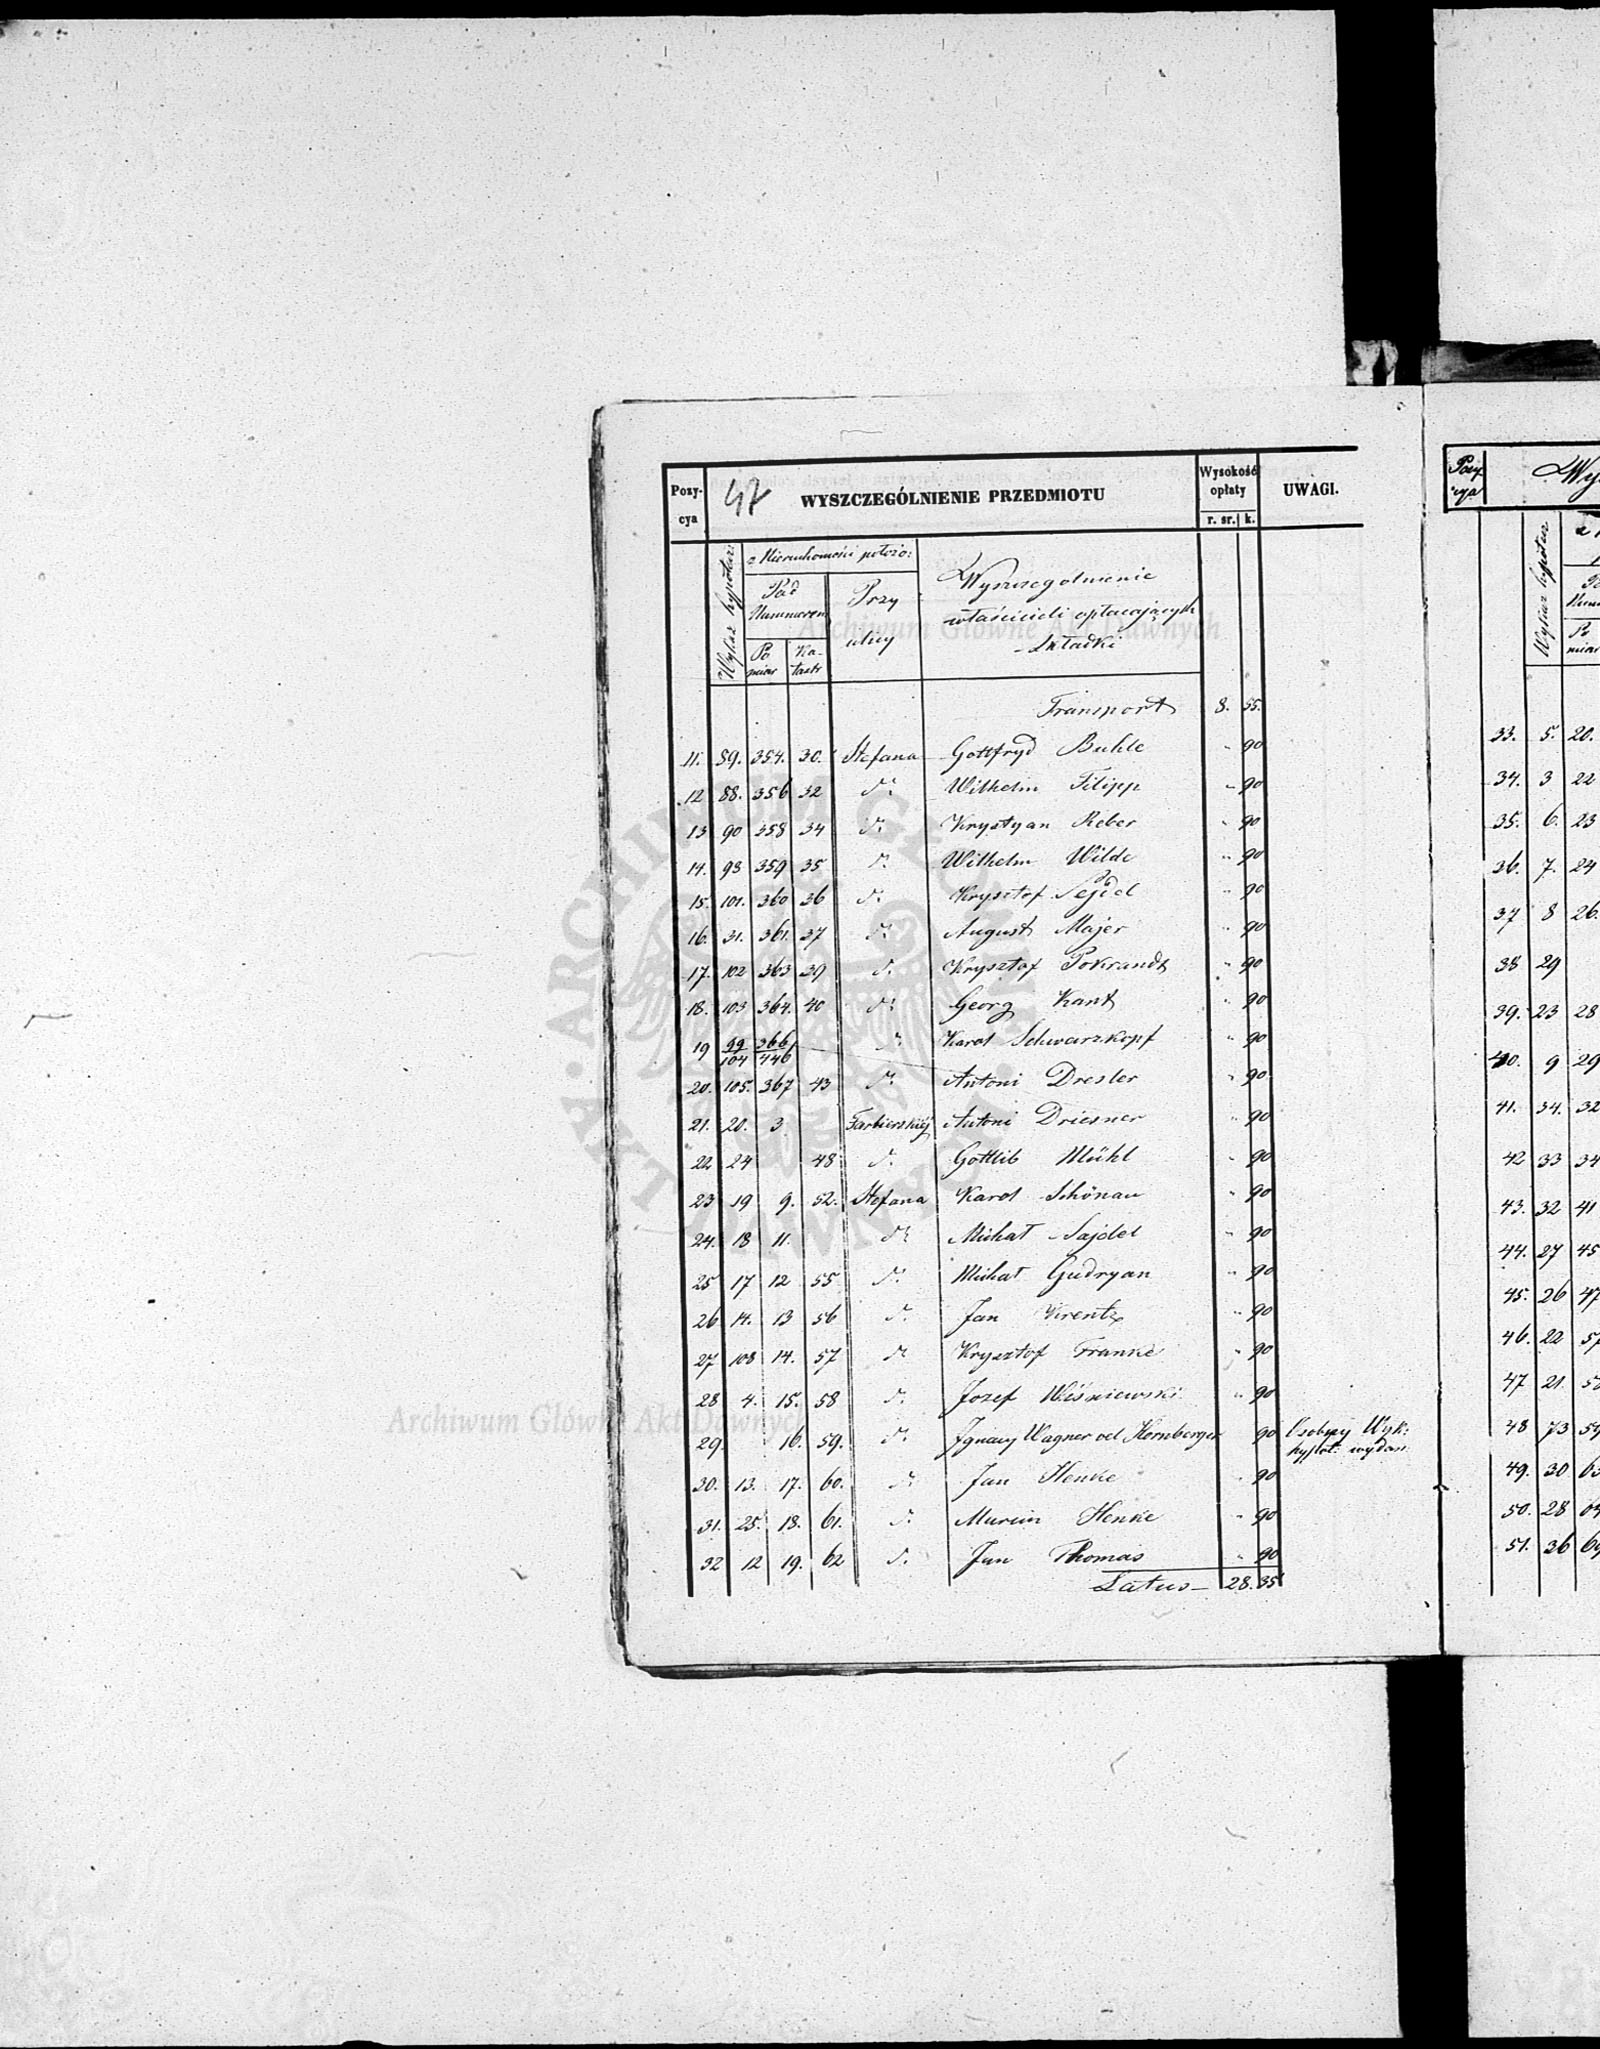 Pozy-
cya
47 WYSZCZEGÓLNIENIE PRZEDMIOTU
Wysokość
opłaty
r. sr. k.
UWAGI.
Wykaz hypotecz:
z Nieruchomości położo:
Pod
Nummerem
Po
miar
Ka-
tastr
Przy
ulicy
Wyszczególnienie
właścicieli opłacających
Składki
Transport 8. 55.
11. 89. 354. 30. Stefana Gottfryd Buhle " 90
12 88. 356 32 d: Wilhelm Filipp " 90
13 90 358 34 d: Krystyan Reber " 90
14. 93 359 35 d: Wilhelm Wilde " 90
15. 101. 360 36 d: Krysztof Sejdel " 90
16. 31. 361. 37 d: August Majer " 90
17. 102 363 39 d: Krysztof Pokrandt " 90
18. 103 364. 40 d: Georg Kant " 90
19 99/104 366/446 d: Karol Schwarzkopf " 90
20. 105. 367 43 d: Antoni Dresler " 90
21. 20. 3 Farbierskiej Antoni Driesner " 90
22 24 48 d: Gottlib Mühl " 90
23 19 9. 52. Stefana Karol Schönau " 90
24. 18 11. d: Michał Sajdel " 90
25 17 12 55 d: Michał Gudryan " 90
26 14. 13 56 d: Jan Krentz " 90
27 108 14. 57 d: Krysztof Franke " 90
28 4. 15. 58 d: Jozef Wiśniewski " 90
29. 16. 59. d: Ignacy Wagner vel Hornberger 90 Osobny Wyk:
hypot: wydan
30. 13. 17. 60. d: Jan Henke " 90
31. 25. 18. 61. d: Marcin Henke " 90
32 12 19. 62 d: Jan Thomas " 90
Latus 28. 35
Pozy
cya
Wy
Wykaz hypotecz
z
Po
miar
33. 5. 20.
34. 3 22
35. 6. 23
36. 7. 24
37 8 26.
38 29
39. 23 28
40. 9 29
41. 34. 32
42 33 34
43. 32 41
44. 27 45
45. 26 47
46. 22 57
47 21
48 73 59
49. 30
50. 28
51. 36
Archiwum Główne Akt Dawnych
Archiwum Główne Akt Dawnych